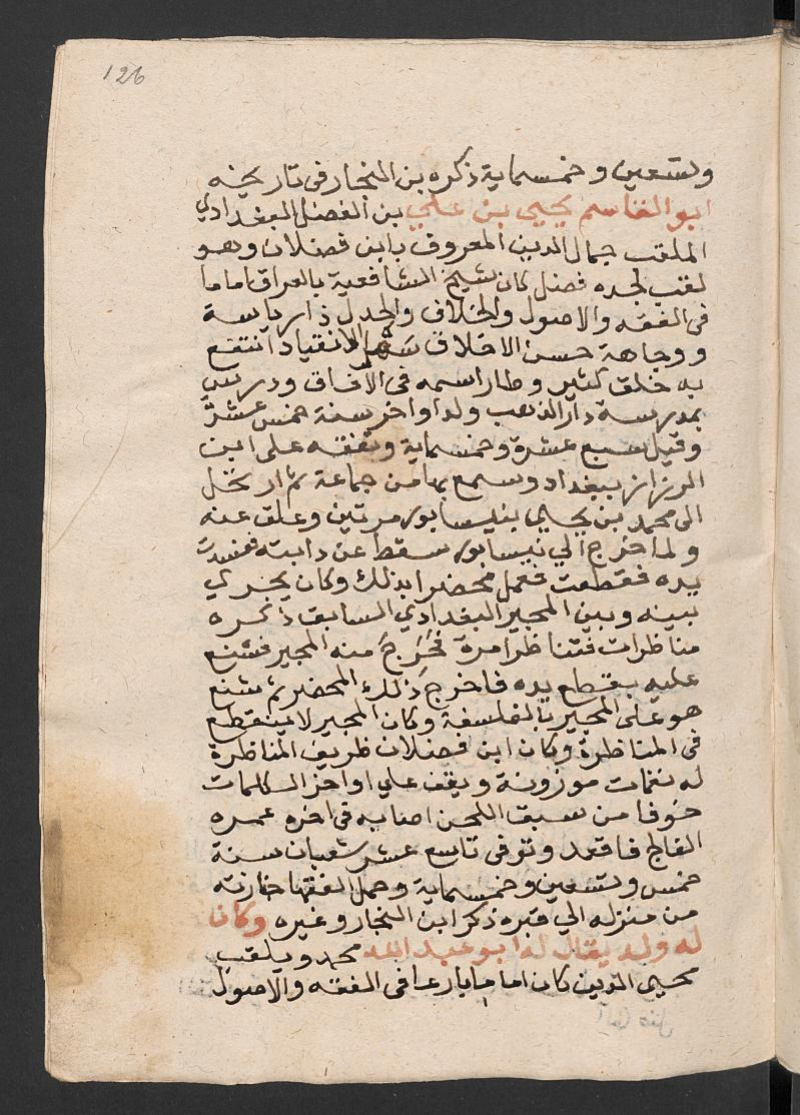 126
وتسعين وخمسماية ذكره بن النجار فى تاريخه
ابو القاسم يحيى بن علي بن الفضل البغدادي
الملقب جمال الدين المعروف بابن فضلان وهو
لقب لجده فضل كان شيخ الشافعية بالعراق اماما
فى الفقه والاصول والخلاف والجدل ذا رياسة
ووجاهة حسن الاخلاق سهل الانقياد انتفع
به خلق كثير وطار اسمه فى الافاق ودرس
بمدرسة دار الذهب ولد اواخر سنة خمس عشرة
وقيل سبع عشرة وخمسماية وتفقه على ابن
الرزاز ببغداد وسمع بها من جماعة ثم ارتحل
الى محمد بن يحيى بنيسابور مرتين وعلق عنه
ولما خرج الي نيسابور سقط عن دابته ففسدت
يده فقطعت فعمل محضرا بذلك وكان يجري
بينه وبين المجير البغدادي السابق ذكره
مناظرات فتناظرا مرة فخرج منه المجير فشنع
عليه بقطع يده فاخرج ذلك المحضر ثم شنع
هو على المجير بالفلسفة وكان المجير لا ينقطع
فى المناظرة وكان ابن فضلان ظريف المناظرة
له نغمات موزونة ويقف على اواخر الكلمات
خوفا من سبق اللحن اصابه فى اخره عمره
الفالج فاقعد وتوفى تاسع عشر شعبان سنة
خمس وتسعين وخمسماية وحمل الفقها جنازته
من منزله الي قبره ذكر ابن النجار وغيره وكان
له ولد يقال له ابو عبد الله محمد ويلقب
محيى الدين كان اماما بارعا فى الفقه والاصول